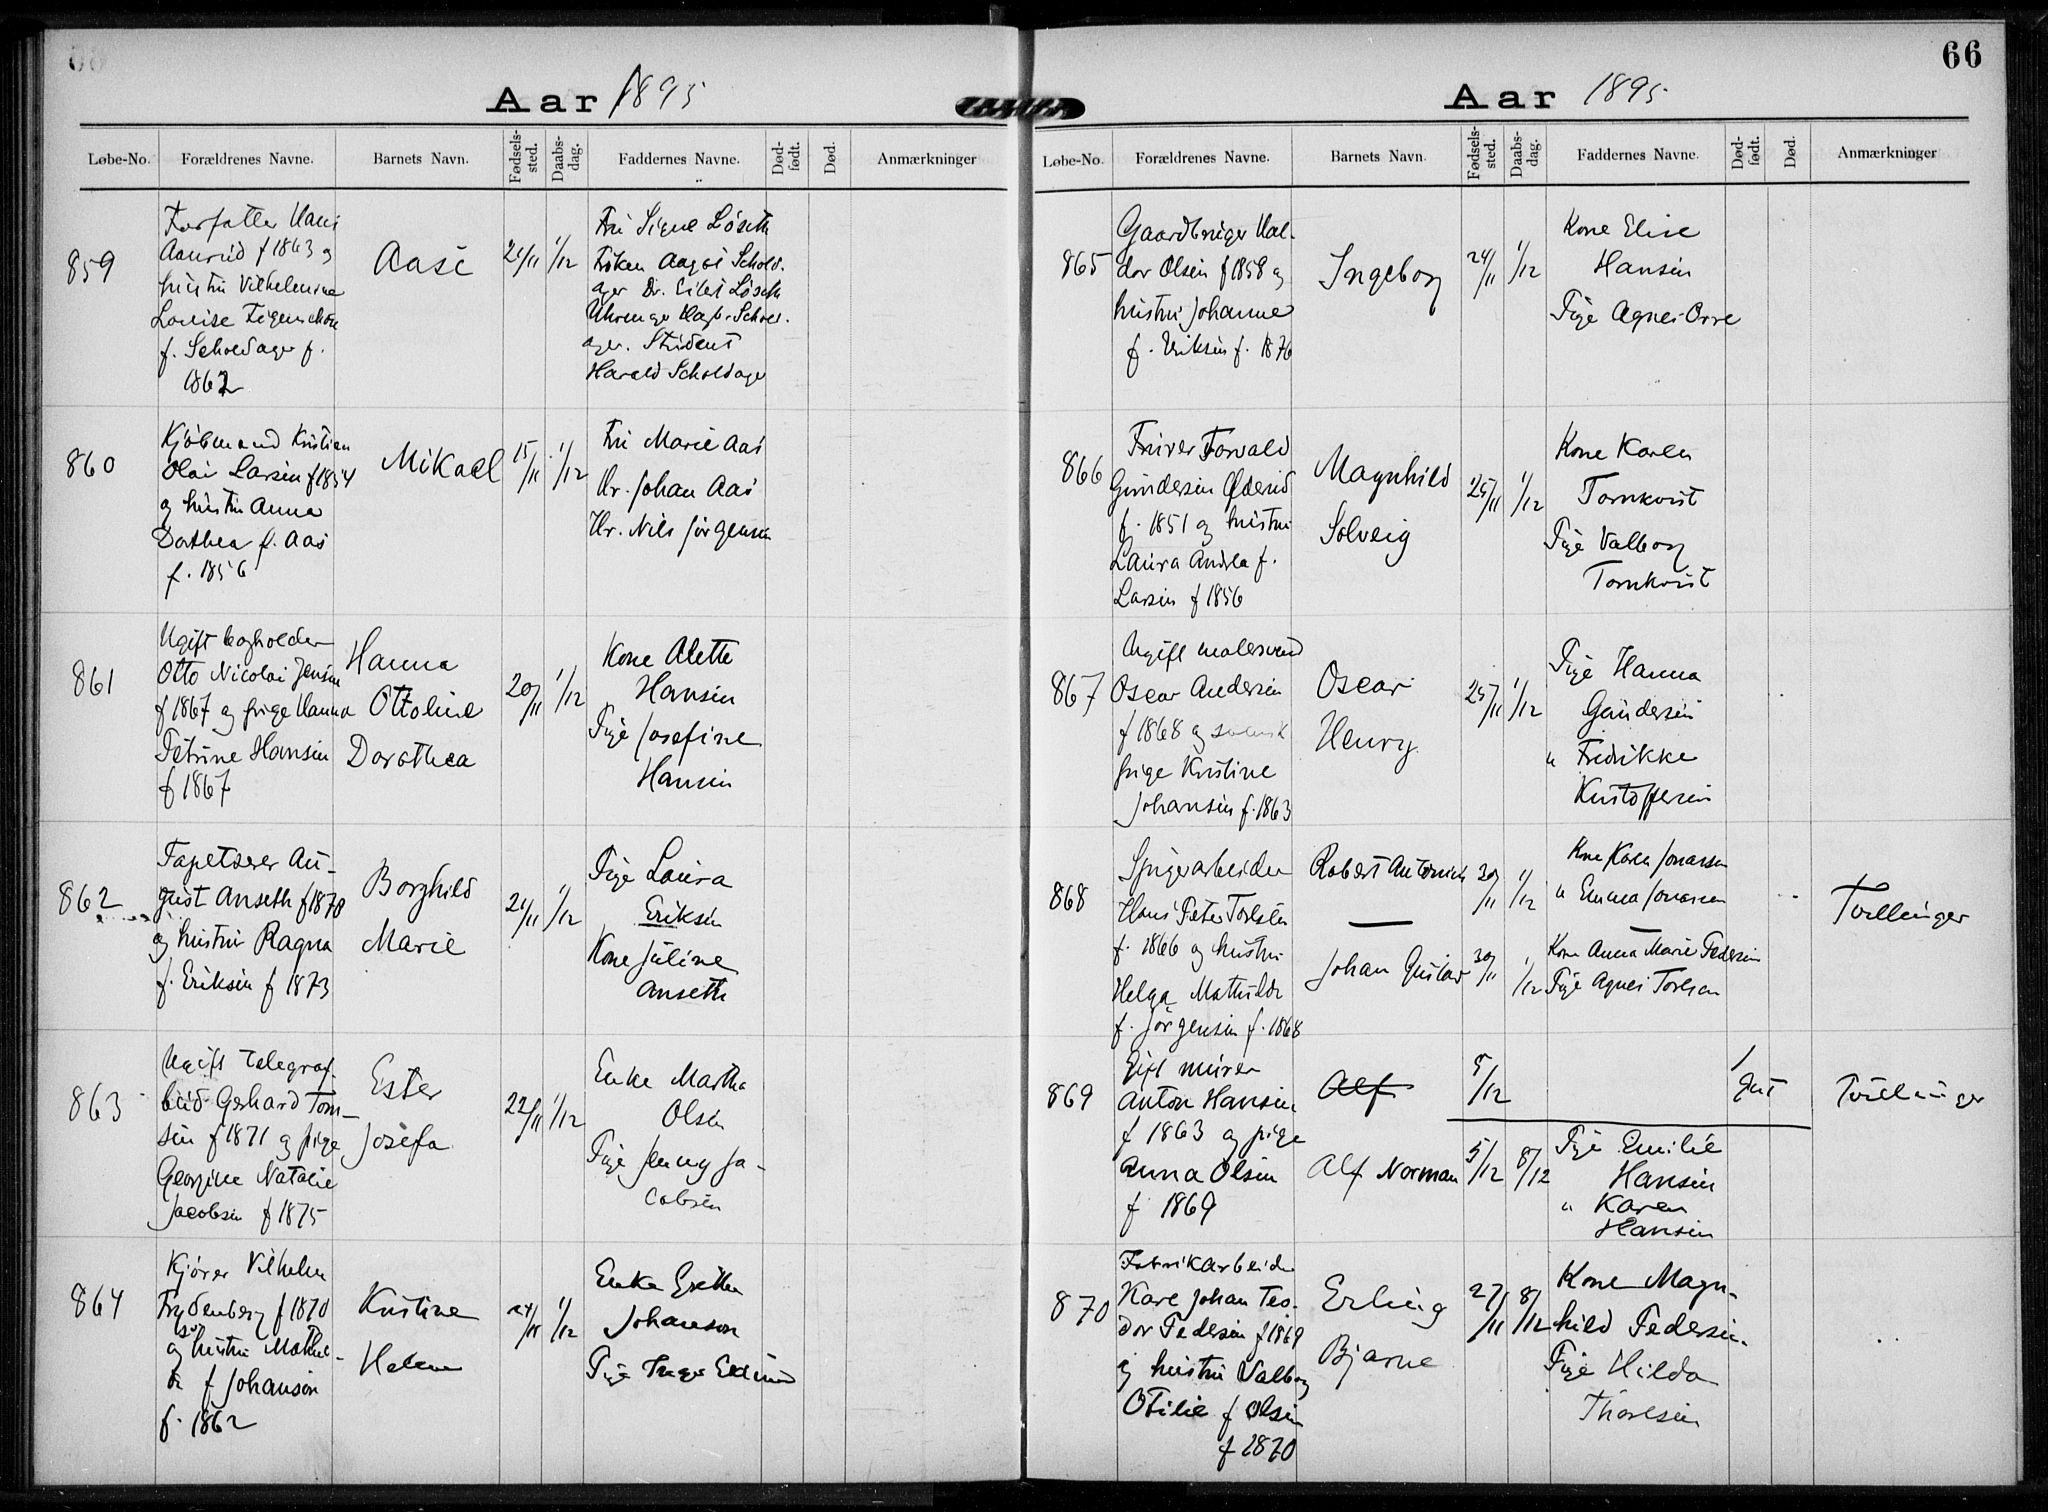 Aar 1895
Løbe-No. Forældrenes Navne. Barnets Navn. Fødsels-sted. Daabs-dag. Faddernes Navne. Død-født. Død. Anmærkninger
859
Forfatter Hans
Aanrud f 1863 og
hustru Vilhelmine
Louise
f. Scholdager f.
1862
Aase
21/11
1/12
Fru Signe Løseth
Frøken Aagot Schold-
ager Dr. Eilert Løseth
Scholdager. Student
Harald Scholdager
860
Kjøbmand Kristian
Olai Larsen f 1854
og hustru Anna
Dorthea f. Aas
f. 1856
Mikael
15/11
1/12
Fru Marie Aas
Hr. Johan Aas
Hr. Nils Jørgensen
861
Ugift bogholder
Otto Nicolai Jensen
f 1867 og pige Hanna
Petrine Hansen
f 1867
Hanna
Ottoline
Dorothea
20/11
1/12
Kone Alette
Hansen
Pige Josefine
Hansen
862
Tapetserer Au-
gust Anseth f 1870
og hustru Ragna
f. Eriksen f 1873
Borghild
Marie
21/11
1/12
Pige Laura
Eriksen
Kone Juline
Anseth
863
Ugift telegraf-
bud Gerhard Tom-
sen f 1871 og pige
Georgine Natalie
Jacobsen f 1875
Ester
Josefa
22/11
1/12
Enke Martha
Olsen
Pige Jenny Ja-
cobsen
864
Kjører Vilhelm
Frydenberg f 1870
og hustru Mathil-
de f Johanson
f. 1862
Kristine
Helene
24/11
1/12
Enke Grethe
Johanson
Pige Inga
66
Aar 1895
Løbe-No. Forældrenes Navne. Barnets Navn. Fødsels-sted. Daabs-dag. Faddernes Navne. Død-født. Død. Anmærkninger
865
Gaardbruger Hal-
dor Olsen f 1858 og
hustru Johanne
f. Eriksen f. 1876
Ingeborg
24/11
1/12
Kone Elise
Hansen
Pige Agnes Orre
866
Torvald
Gundersen Øderud
f. 1851 og hustru
Laura Andrea f.
Larsen f 1856
Magnhild
Solveig
25/11
1/12
Kone Karen
Tornkvist
Pige Valborg
Tornkvist
867
Ugift malersvend
Oscar Andersen
f 1868 og svensk
pige Kristine
Johansen f. 1863
Oscar
Henry
25/11
1/12
Pige Hanna
Gundersen
" Fredrikke
Kristoffersen
868
Spigerarbeider
Hans Peter Torlsen
f. 1866 og hustru
Helga Mathilde
f. Jørgensen f. 1868
Robert Antonius
30/11
1/12
Kone Karen Jonassen
" Emma Jonassen
Tvillinger
Johan Gustav
30/11
1/12
Kone Anna Marie Pedersen
Pige Agnes Torlsen
869
Gift murer
Anton Hansen
f 1863 og pige
Anna Olsen
f 1869
Alf
5/12
1
Gut
Tvillinger
Alf Norman
5/12
8/12
Pige Emilie
Hansen
" Karen
Hansen
870
Fabrikarbeider
Karl Johan Teo-
dor Pedersen f 1869
og hustru Valborg
Otilie f Olsen
f 1870
Erling
Bjarne
27/11
8/12
Kone Magn-
hild Pedersen
Pige Hilda
Thorlsen